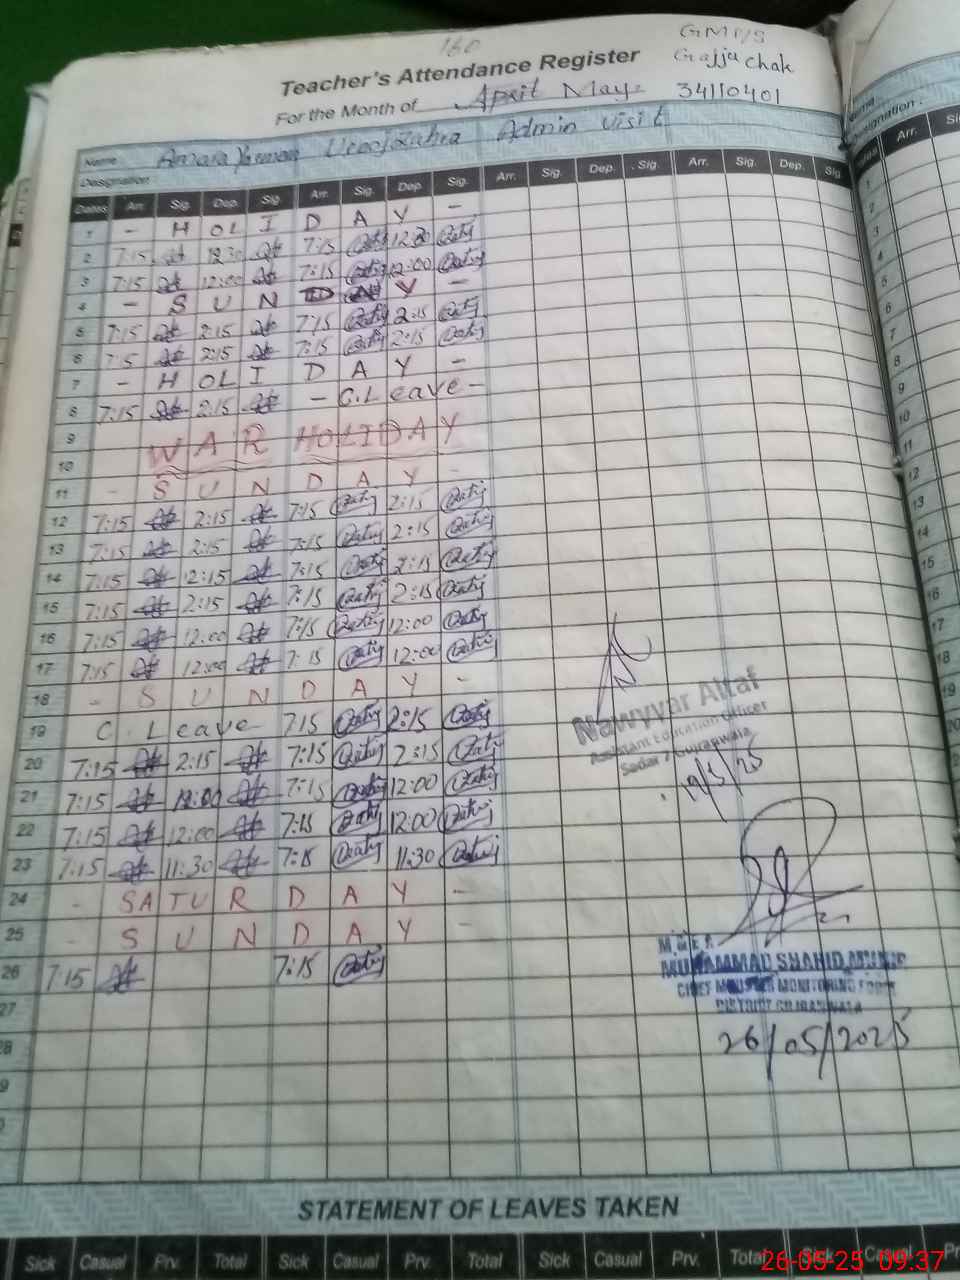 160
GMP/S
Teacher's Attendance Register Gajju Chak
For the Month of April May 34110401
Name Admin visit
Designation
Dates Arr. Sig. Dep. Sig. Arr. Sig. Dep. Sig. Arr. Sig. Dep. Sig. Arr. Sig. Dep. Sig
1 - H OL I D A Y -
2 7:15 12:30 7:15 12:30
3 7:15 12:00 7:15 12:00
4 - S U N D A Y -
5 7:15 2:15 7:15 2:15
6 7:15 2:15 7:15 2:15
7 - H OL I D A Y -
8 7:15 2:15 - C.Leave -
9 WAR HOLIDAY
10
11 - S U N D A Y -
12 7:15 2:15 7:15 2:15
13 7:15 2:15 7:15 2:15
14 7:15 2:15 7:15 2:15
15 7:15 2:15 7:15 2:15
16 7:15 12:00 7:15 12:00
17 7:15 12:00 7:15 12:00
18 - S U N D A Y -
19 C. Leave - 7:15 2:15
20 7:15 2:15 7:15 2:15
21 7:15 12:00 7:15 12:00
22 7:15 12:00 7:15 12:00
23 7:15 11:30 7:15 11:30
24 - SA TU R D A Y -
25 - S U N D A Y -
26 7:15 7:15
27
28
Nawyyar Altaf
Assistant Education Officer
Sadar 7 Gujranwala
19/5/25
MUHAMMAD SHAHID
CHIEF MINISTER MONITORING FORCE
DISTRICT GUJRANWALA
26/05/2025
STATEMENT OF LEAVES TAKEN
Sick Casual Prv. Total Sick Casual Prv. Total Sick Casual Prv. Total Sick Casual Pr
26-05-25 09:37